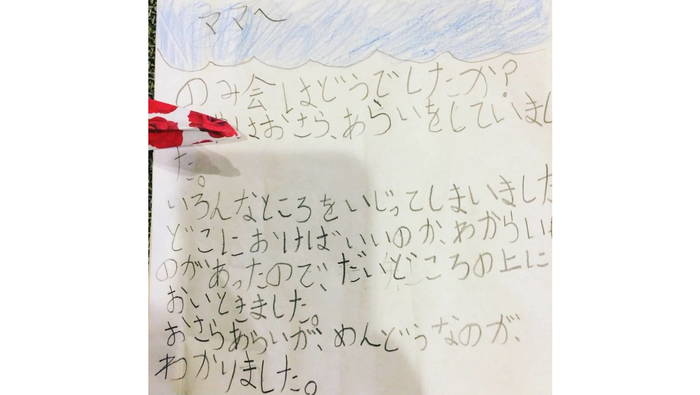 ママへ
のみ会はどうでしたか?
はおさら、あらいをしていまし
た。
いろんなところをいじってしまいました
どこにおけばいいのか、わからい
のがあったので、だいどころの上に
おいときました。
おさらあらいが、めんどうなのが、
わかりました。